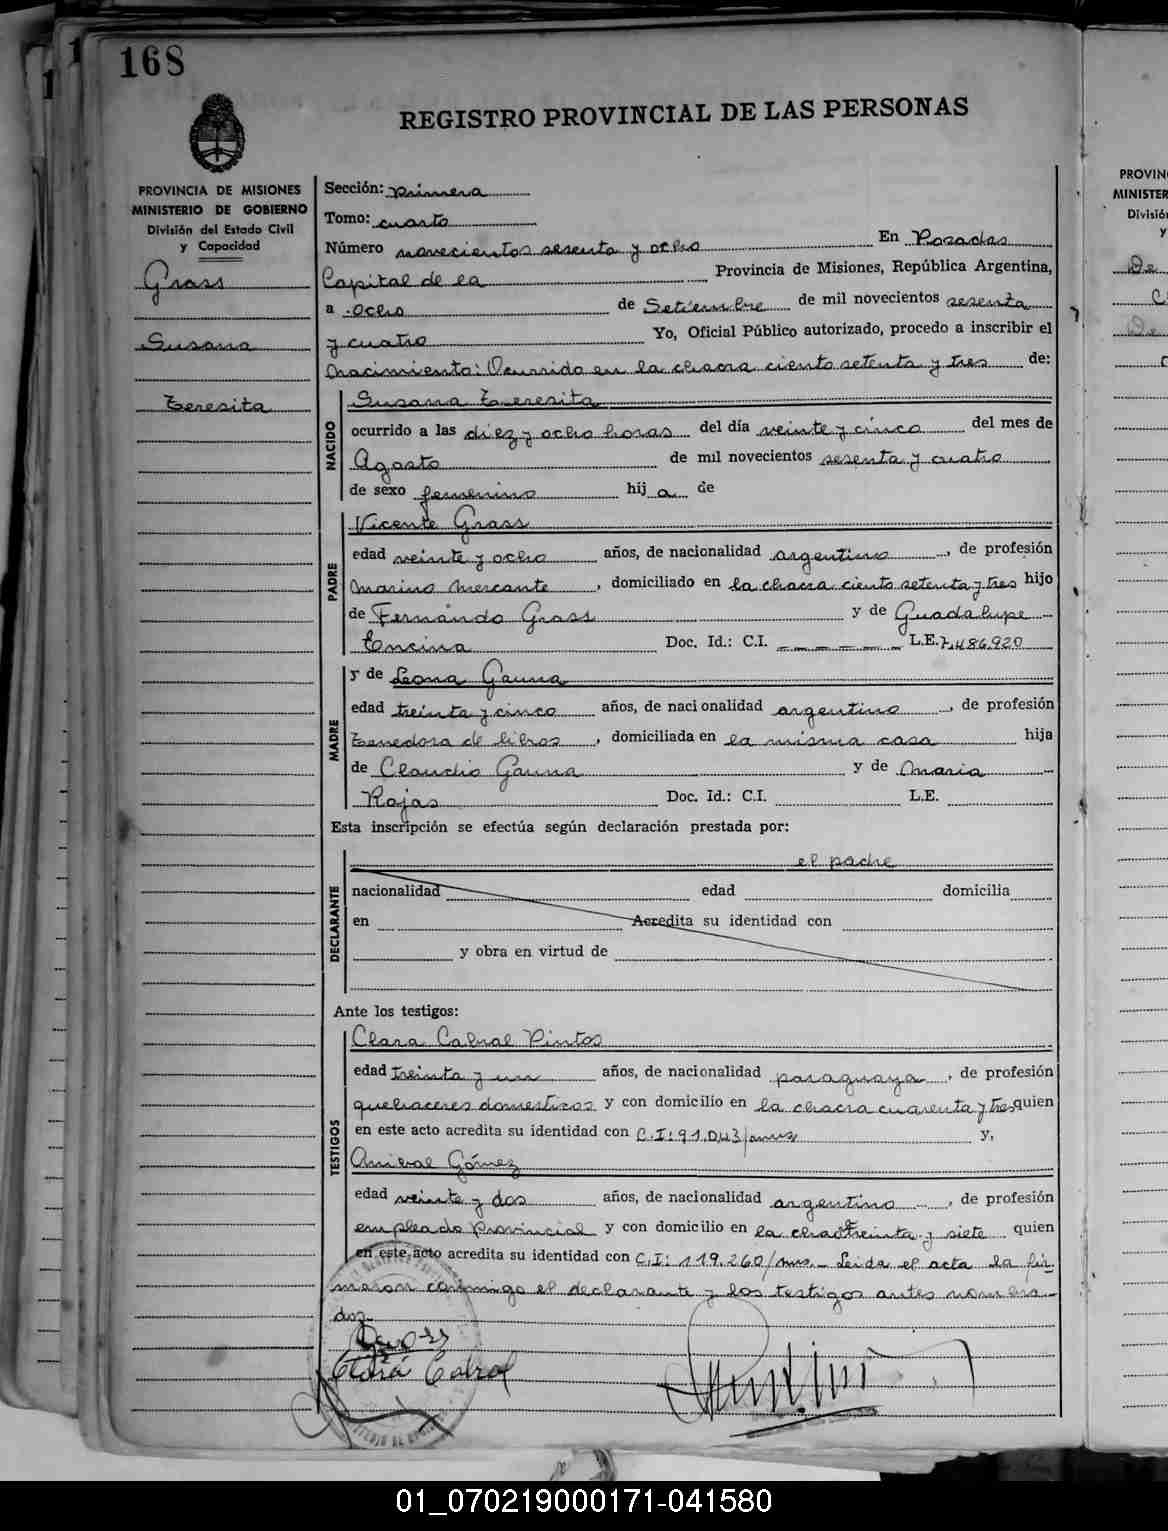 168
REGISTRO PROVINCIAL DE LAS PERSONAS
PROVINCIA DE MISIONES
MINISTERIO DE GOBIERNO
División del Estado Civil
y Capacidad
Grass
Susana
Teresita
Sección: primera
Tomo: cuarto
Número novecientos sesenta y ocho En Posadas
Capital de la Provincia de Misiones, República Argentina,
a ocho de Setiembre de mil novecientos sesenta
y cuatro Yo, Oficial Público autorizado, procedo a inscribir el
nacimiento: Ocurrido en la chacra ciento setenta y tres de:
NACIDO
Susana Teresita
ocurrido a las diez y ocho horas del día veinte y cinco del mes de
Agosto de mil novecientos sesenta y cuatro
de sexo femenino hij a de
PADRE
Vicente Grass
edad veinte y ocho años, de nacionalidad argentino, de profesión
Marino mercante, domiciliado en la chacra ciento setenta y tres hijo
de Fernando Grass y de Guadalupe
Encina Doc. Id.: C.I. — — — — — L.E. 7.486.920
MADRE
y de Leona Gauna
edad treinta y cinco años, de nacionalidad argentino, de profesión
Tenedora de libros, domiciliada en la misma casa hija
de Claudio Gauna y de Maria
Rojas Doc. Id.: C.I. L.E.
Esta inscripción se efectúa según declaración prestada por:
DECLARANTE
el padre
nacionalidad edad domicilia
en Acredita su identidad con
y obra en virtud de
Ante los testigos:
TESTIGOS
Clara Cabral Pintos
edad treinta y un años, de nacionalidad paraguaya, de profesión
quehaceres domesticos y con domicilio en la chacra cuarenta y tres quien
en este acto acredita su identidad con C.I: 91.043/mns y,
Anibal Gómez
edad veinte y dos años, de nacionalidad argentino, de profesión
empleado Provincial y con domicilio en la treinta y siete quien
en este acto acredita su identidad con C.I: 119.260/mns.- Leida el acta la fir-
maron conmigo el declarante y los testigos antes nombra-
dos.-
Clara Cabral
PROVIN
MINISTER
Divisió
y
De
01_070219000171-041580